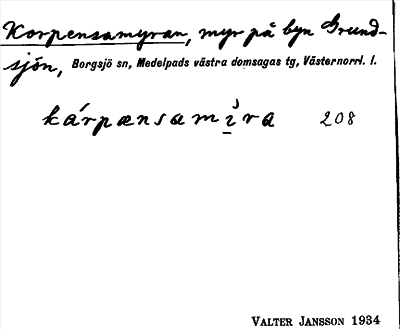 Korpensamyran, myr på byn Grund-
sjön, Borgsjö sn, Medelpads västra domsagas tg, Västernorrl. l.
kárpænsamı̲̀ra 208
VALTER JANSSON 1934